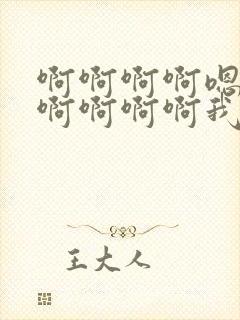 啊啊啊啊嗯
啊啊啊啊我
王大人